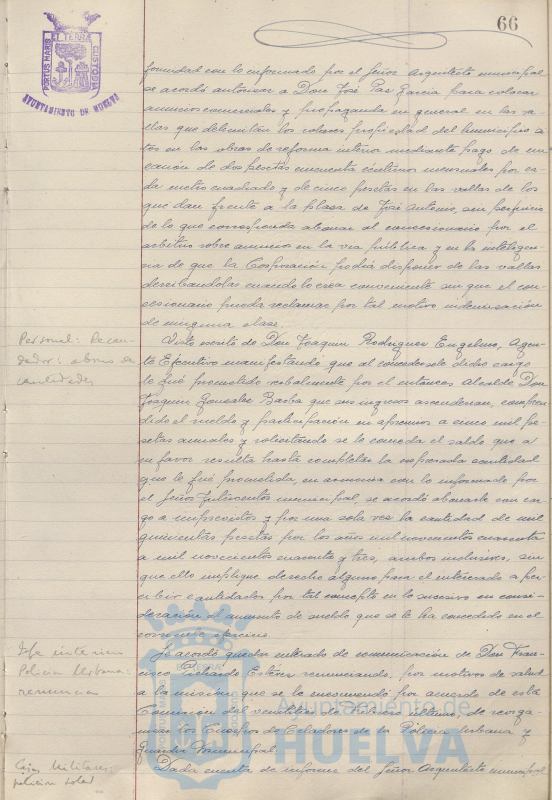 66
PORTUS MARIS ET TERRÆ CUSTODIA
AYUNTAMIENTO DE HUELVA
formidad con lo informado por el Señor Arquitecto municipal
se acordó autorizar a Don José Paz García para colocar
anuncios comerciales y propaganda en general en las va-
llas que delimitan los solares propiedad del municipio a
tos en las obras de reforma interior mediante pago de un
canon de dos pesetas cincuenta céntimos mensuales por ca-
da metro cuadrado y de cinco pesetas en las vallas de los
que dan frente a la plaza de José Antonio, sin perjuicio
de lo que corresponda abonar al concesionario por el
arbitrio sobre anuncios en la via pública y en la inteligen-
cia de que la Corporación podrá disponer de las vallas
derribandolas cuando lo crea conveniente sin que el con-
cesionario pueda reclamar por tal motivo indemnización
de ninguna clase.
Personal: Recau-
dador: abono de
cantidades
Visto escrito de Don Joaquin Rodriguez Engelmo, Agen-
te Ejecutivo manifestando que al concedersele dicho cargo
le fué prometido verbalmente por el entonces Alcalde Don
Joaquin Gonzalez Barba que sus ingresos ascenderian, compren-
dido el sueldo y participación en apremios a cinco mil pe-
setas anuales y solicitando se le conceda el saldo que a
su favor resulta hasta completar la expresada cantidad
que le fué prometida, en armonia con lo informado por
el Señor Interventor municipal se acordó abonarle con car-
go a imprevistos y por una sola vez la cantidad de mil
quinientas pesetas por los años mil novecientos cuarenta
a mil novecientos cuarenta y tres, ambos inclusives, sin
que ello implique derecho alguno para el interesado a per-
cibir cantidades por tal concepto en lo sucesivo en consi-
deración al aumento de sueldo que se le ha concedido en el
corriente ejercicio.
Jefe interino
Policia Urbana:
renuncia
Se acordó quedar enterado de comunicación de Don Fran-
cisco Pichardo Estévez renunciando, por motivos de salud
a la misión que se le encomendó por acuerdo de esta
Comisión del veintitres de Febrero último, de reorga-
nizar los Cuerpos de Celadores de la Policia Urbana y
Guardia Municipal.
Cajas Militares:
peticion solar
Dada cuenta de informe del Señor Arquitecto municipal
Ayuntamiento de
HUELVA